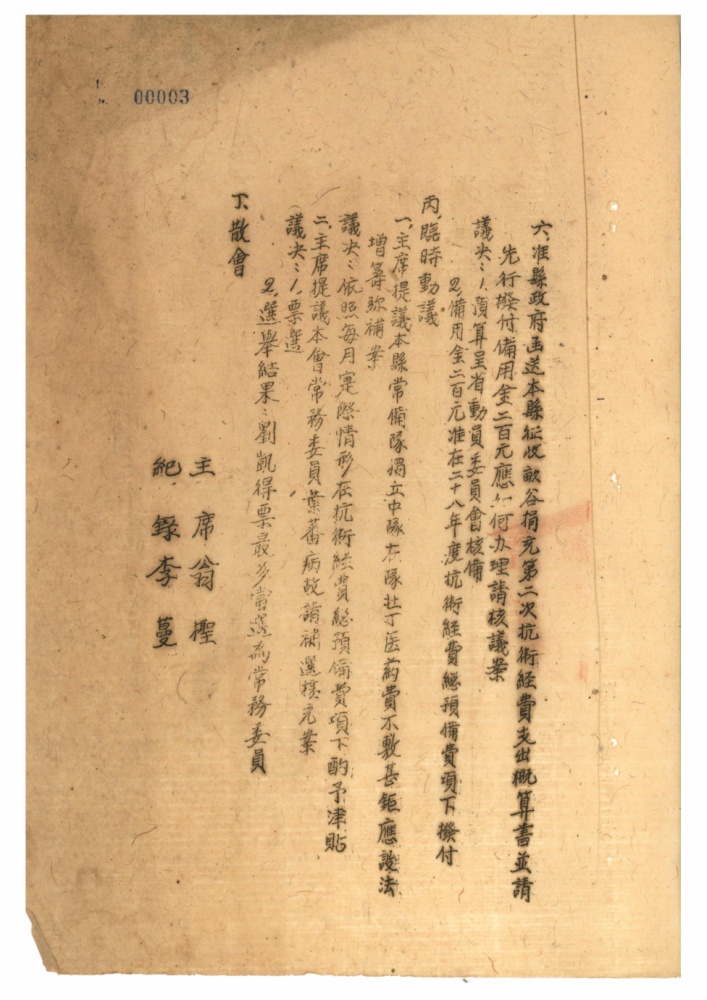 00003
六、准縣政府函送本縣征收畝谷捐充第二次抗衛経費支出概算書並請
先行撥付備用金二百元應如何办理請核議案
議决：1.預算呈省動員委員會核備
2.備用金二百元准在二十八年度抗衛経費總預備費項下撥付
丙、臨時動議
一、主席提議本縣常備隊獨立中隊本隊壯丁医葯費不敷甚鉅應設法
增籌弥補案
議决：依照每月实際情形在抗衛経費總預備費項下酌予津貼
二、主席提議本會常務委員葉蕃病故請補選様元案
議决：1.票選
2.選舉結果：劉凱得票最多當選為常務委員
丁、散會
主席翁檉
紀錄李蔓